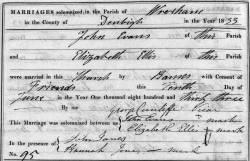 MARRIAGES solemnized in the Parish of Wrexham
in the County of Denbigh in the Year 1833
John Evans of this Parish
and
Elizabeth Ellis of this
Parish
were married in this Church by Banns with Consent of
Friends this Tenth Day of
June in the Year One thousand eight hundred and thirty three
By me
This Marriage was solemnized between us
John Evans mark
Elizabeth Ellis mark
In the presence of John Jones
Hannah Jones mark
No. 95